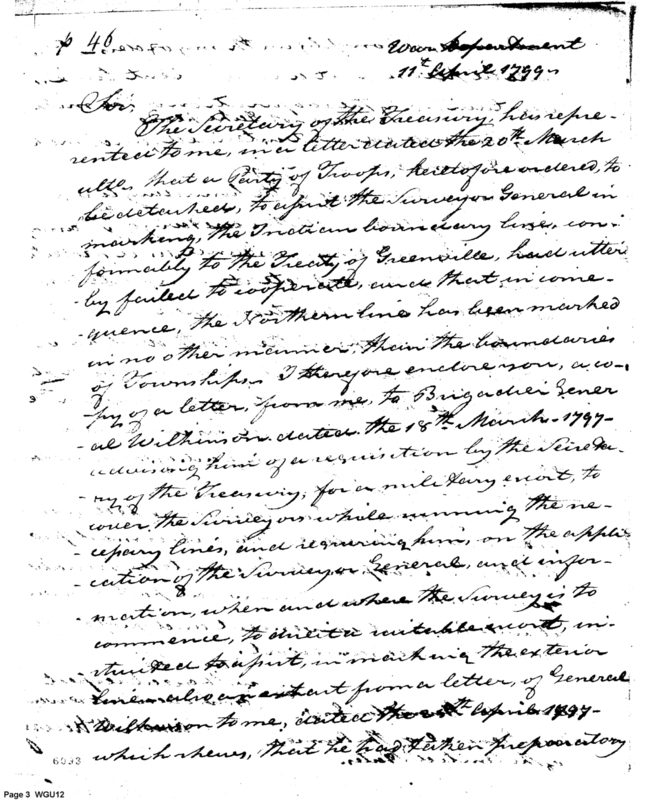 p 46
War Department
11th April 1799
Sir
The Secretary of the Treasury, has repre-
sented to me, in a letter dated the 20th March
ulto. that a Party of Troops, heretofore ordered, to
be detached, to assist the Surveyor General in
marking, the Indian boundary line, con-
formably to the Treaty of Greenville, had utter-
ly failed to cooperate, and that in conse-
quence, the Northern line has been marked
in no other manner, than the boundaries
of Townships. I therefore enclose you, a co-
py of a letter, from me, to Brigadier Gener-
al Wilkinson dated the 18th March 1797
advising him of a requisition by the Secreta-
ry of the Treasury, for a military escort, to
cover the Surveyors while running the ne-
cessary lines, and requiring him, on the appli-
cation of the Surveyor General, and infor-
mation, when and where the Survey is to
commence, to direct a suitable escort, in-
structed to assist, in marking the exterior
line also an extract from a letter, of General
Wilkinson to me, dated the April 1797
which shews, that he had taken preparatory
6093
Page 3 WGU12